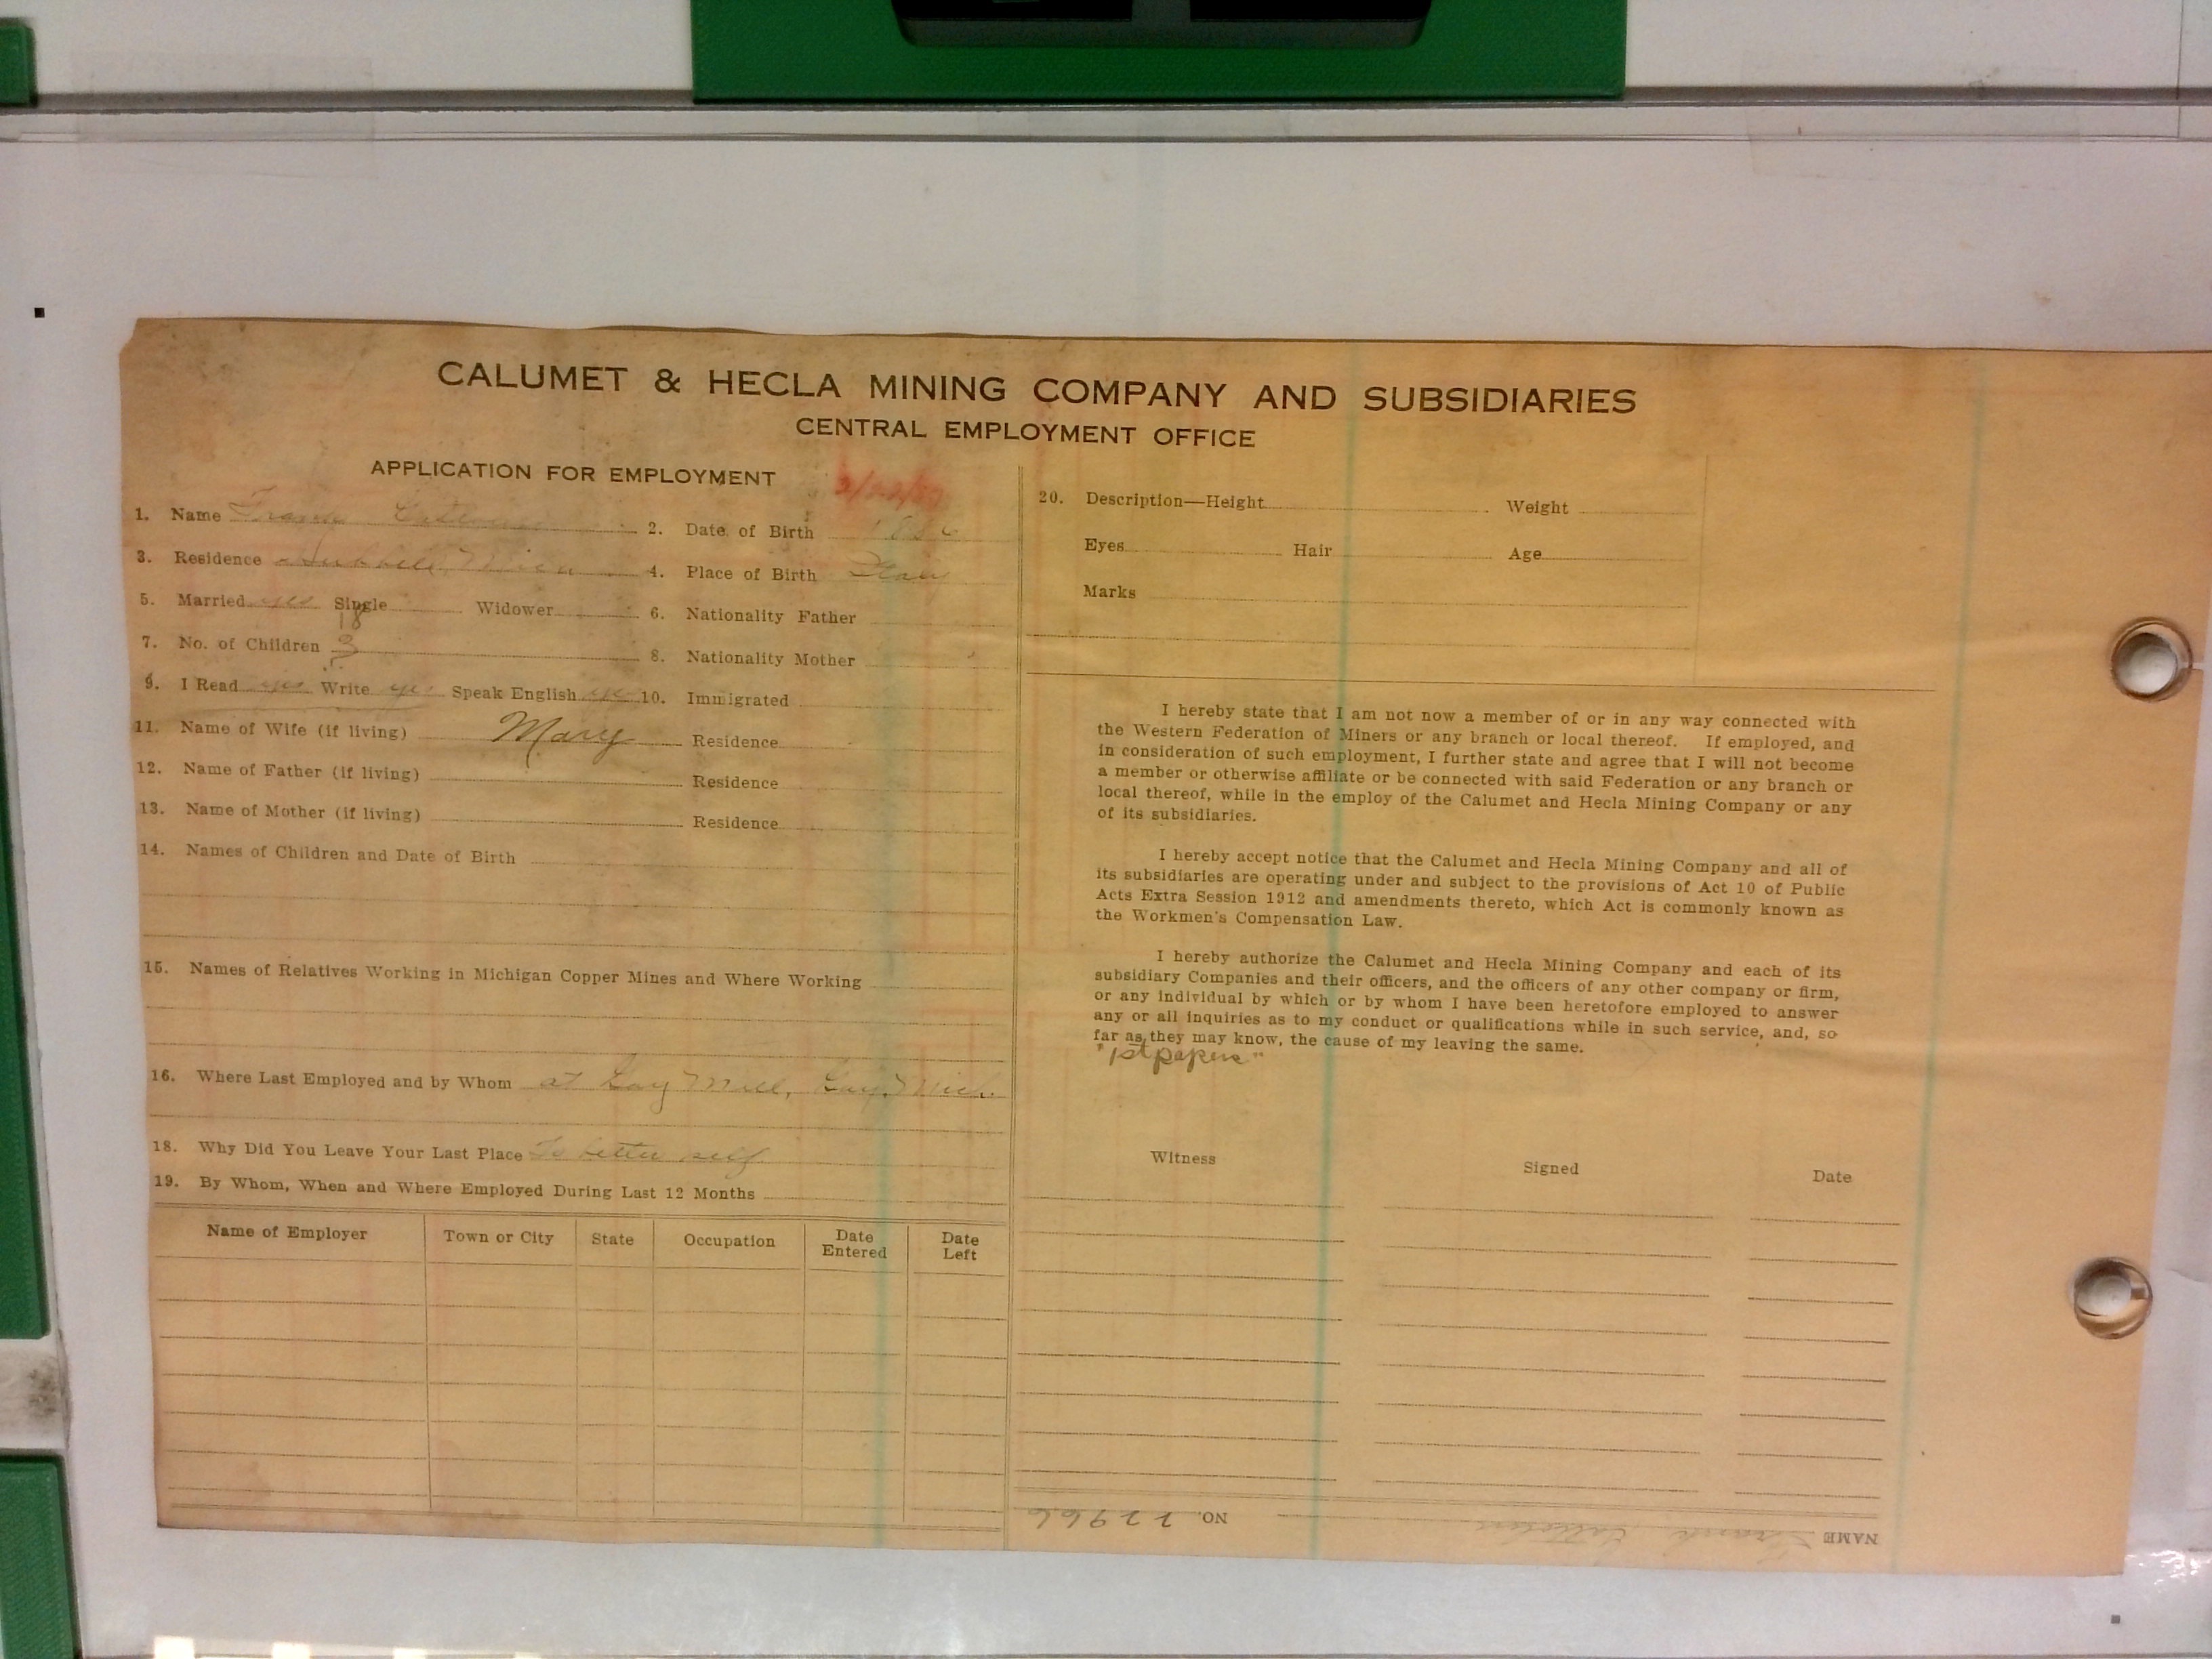 CALUMET & HECLA MINING COMPANY AND SUBSIDIARIES
CENTRAL EMPLOYMENT OFFICE
APPLICATION FOR EMPLOYMENT
1. Name Frank
2. Date of Birth
3. Residence Hubbell, Mich
4. Place of Birth
5. Married yes Single Widower
6. Nationality Father
7. No. of Children
8. Nationality Mother
9. I Read yes Write yes Speak English yes 10. Immigrated
11. Name of Wife (if living) Mary Residence
12. Name of Father (if living) Residence
13. Name of Mother (if living) Residence
14. Names of Children and Date of Birth
15. Names of Relatives Working in Michigan Copper Mines and Where Working
16. Where Last Employed and by Whom at Gay Mill, Gay, Mich.
18. Why Did You Leave Your Last Place To better self
19. By Whom, When and Where Employed During Last 12 Months
Name of Employer Town or City State Occupation Date Entered Date Left
20. Description—Height Weight
Eyes Hair Age
Marks
I hereby state that I am not now a member of or in any way connected with
the Western Federation of Miners or any branch or local thereof. If employed, and
in consideration of such employment, I further state and agree that I will not become
a member or otherwise affiliate or be connected with said Federation or any branch or
local thereof, while in the employ of the Calumet and Hecla Mining Company or any
of its subsidiaries.
I hereby accept notice that the Calumet and Hecla Mining Company and all of
its subsidiaries are operating under and subject to the provisions of Act 10 of Public
Acts Extra Session 1912 and amendments thereto, which Act is commonly known as
the Workmen's Compensation Law.
I hereby authorize the Calumet and Hecla Mining Company and each of its
subsidiary Companies and their officers, and the officers of any other company or firm,
or any individual by which or by whom I have been heretofore employed to answer
any or all inquiries as to my conduct or qualifications while in such service, and, so
far as they may know, the cause of my leaving the same.
"1st papers"
Witness Signed Date
NAME Frank NO. 22966